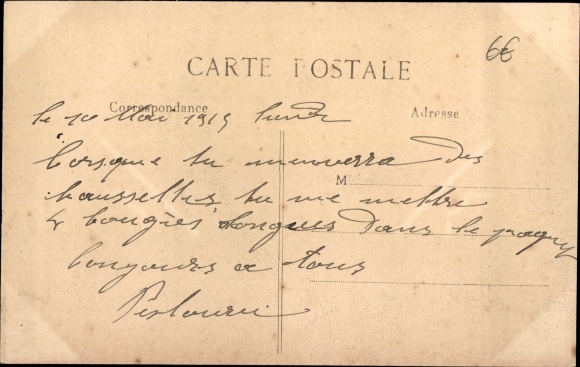 6€
CARTE POSTALE
Correspondance
Adresse
le 10 Mai 1915 lundi
Lorsque tu menverra des
M
chaussettes tu me mettre
4 bougies longues Dans le paquet
bonjours a tous